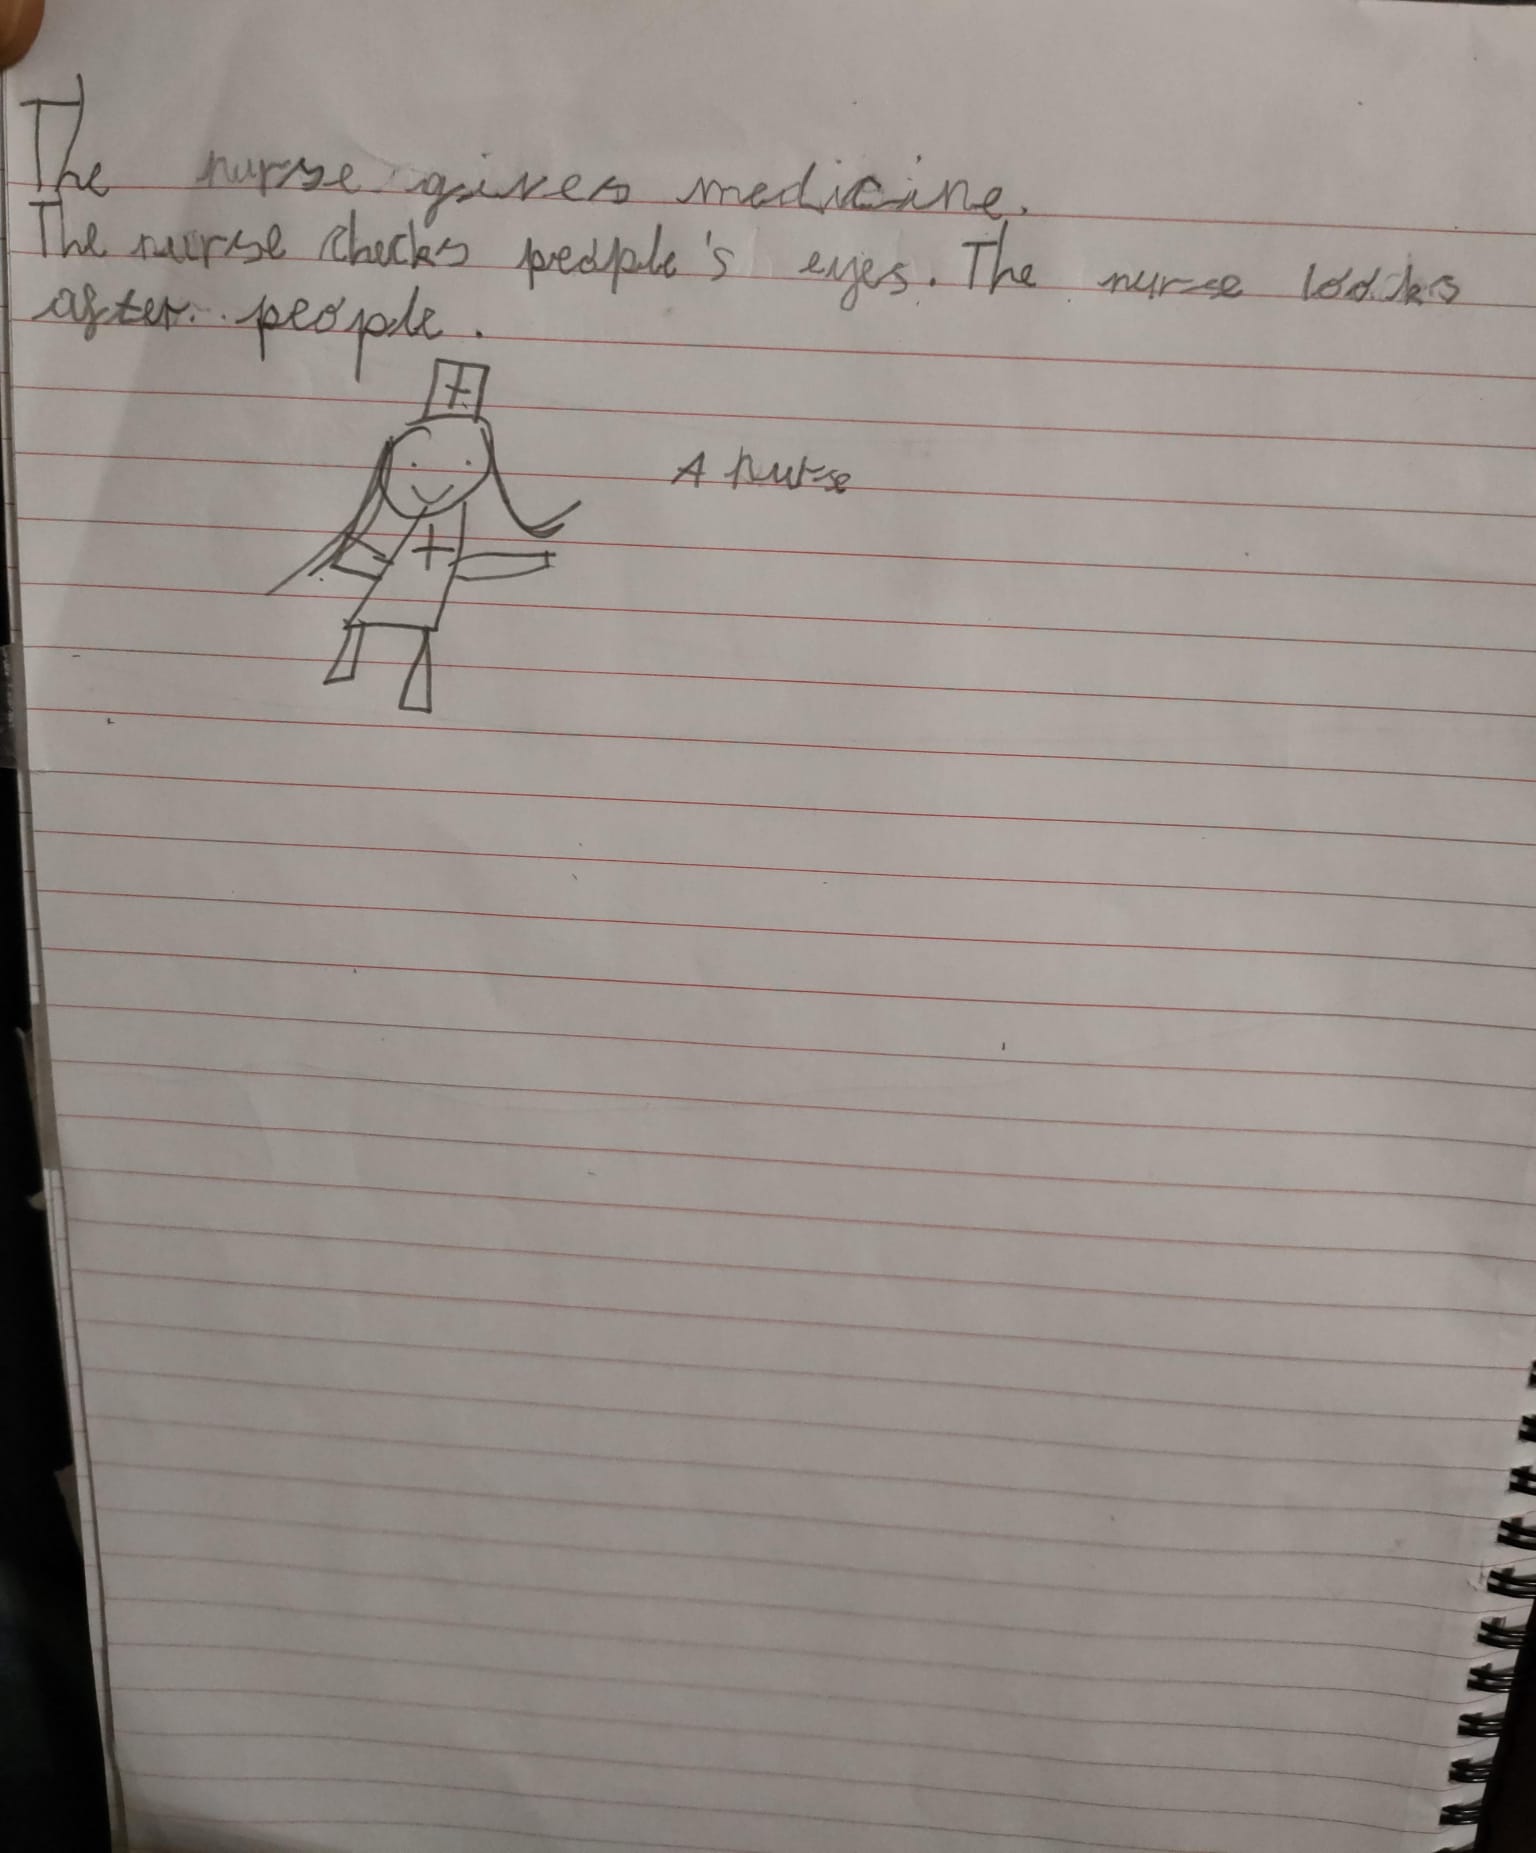 The nurse gives medicine.
The nurse checks people's eyes. The nurse looks
after people.
A nurse